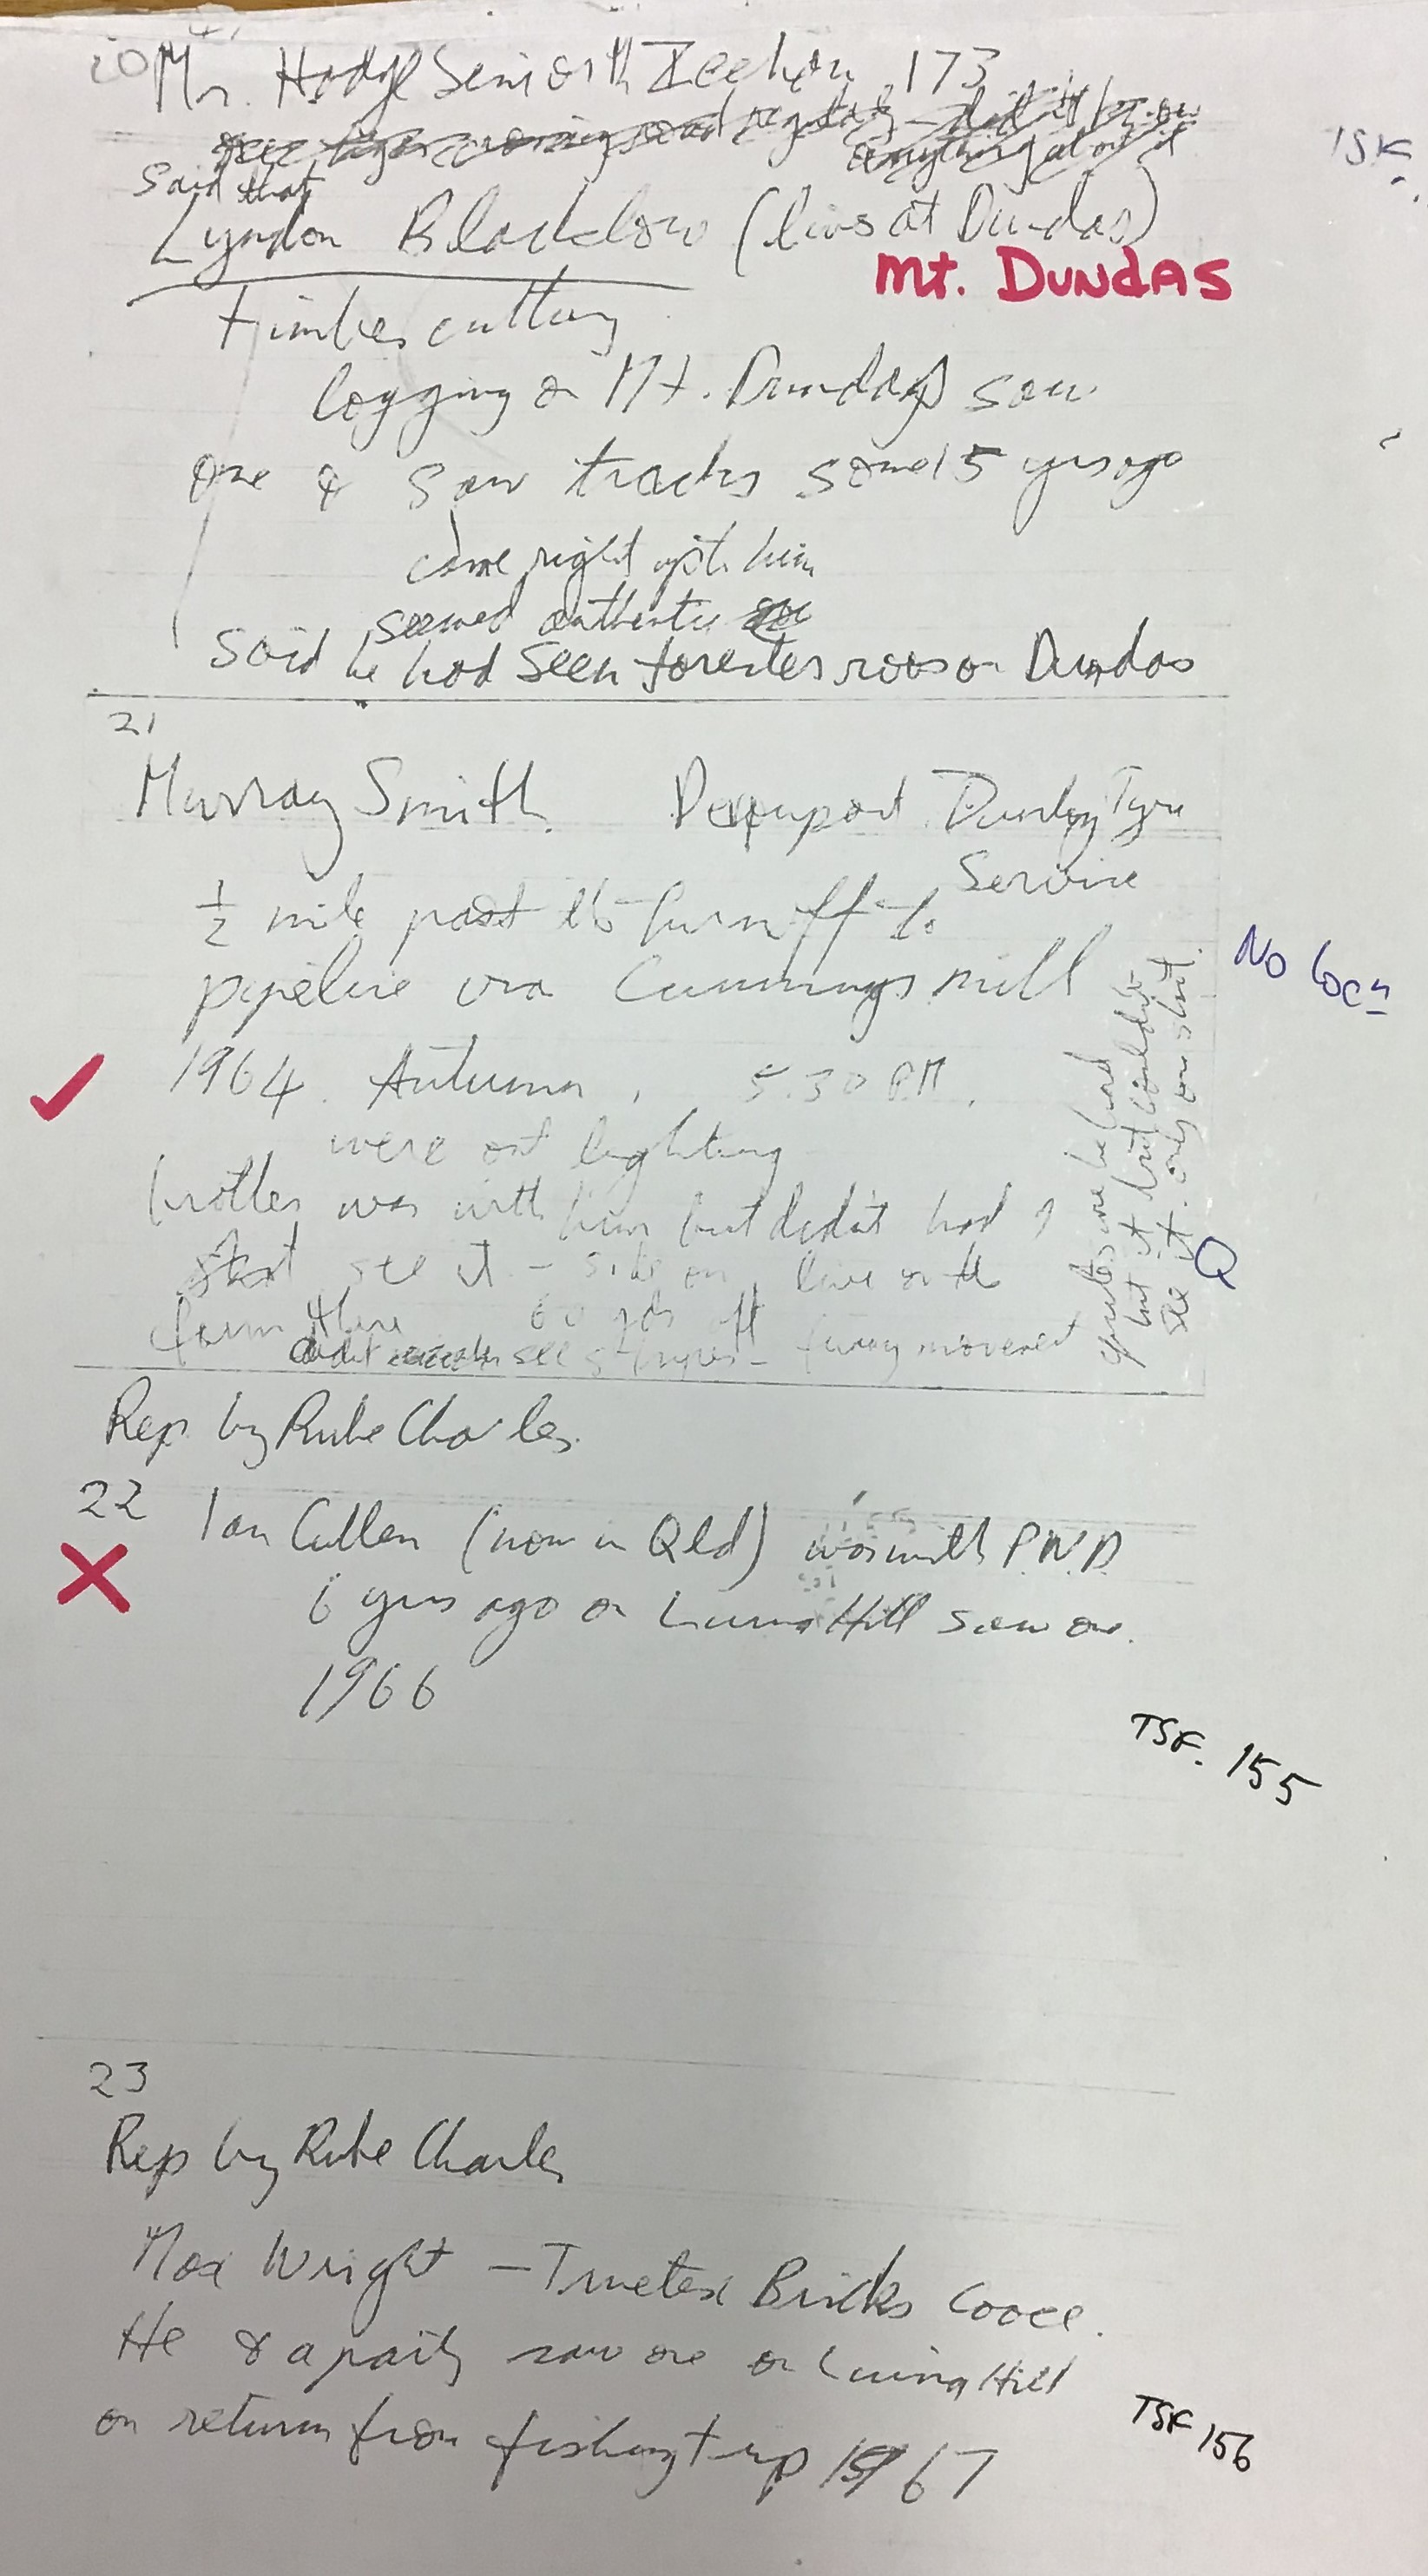 20 Mr. Hodge Senior Zeehan 173
see tiger crossing road regularly – didn't know
anything about it
TSK
Said that
Lyndon Blacklow (lives at Dundas)
Mt. DUNDAS
timber cutting
logging on Mt. Dundas saw
one & saw tracks some 15 yrs ago
came right up to him
seemed authentic
Said he had seen forester roos on Dundas
21
Murray Smith Devonport Dunlop Tyre
Service
½ mile past the turnoff to
pipeline via Cummings mill
No Locn
1964. Autumn, 5.30 P.M.
were out
brother was with him but didn't
see it – side on, live on the
farm there 60 yds off
see stripes – funny movement
but it didn't
see it. only one shot.
Q
Rep. by Rube Charles.
22 Ian Cullen (now in Qld) was with P.W.D.
6 yrs ago on Luina Hill saw one.
1966
TSK. 155
23
Rep by Rube Charles
Max Wright – Truetex Bricks Cooee.
He & a party saw one on Luina Hill
on return from fishing trip 1967
TSK 156